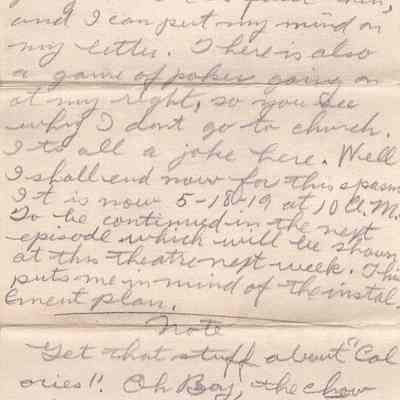 and I can put my mind on
my letter. There is also
a game of poker going on
at my right, so you see
why I dont go to church.
Its all a joke here. Well
I shall end now for this spasm
It is now 5-18-19 at 10 A.M.
To be continued in the next
episode which will be shown
at this theatre next week. This
puts me in mind of the instal-
lment plan.
Note
Get that stuff about "Cal
ories". Oh Boy, the chow